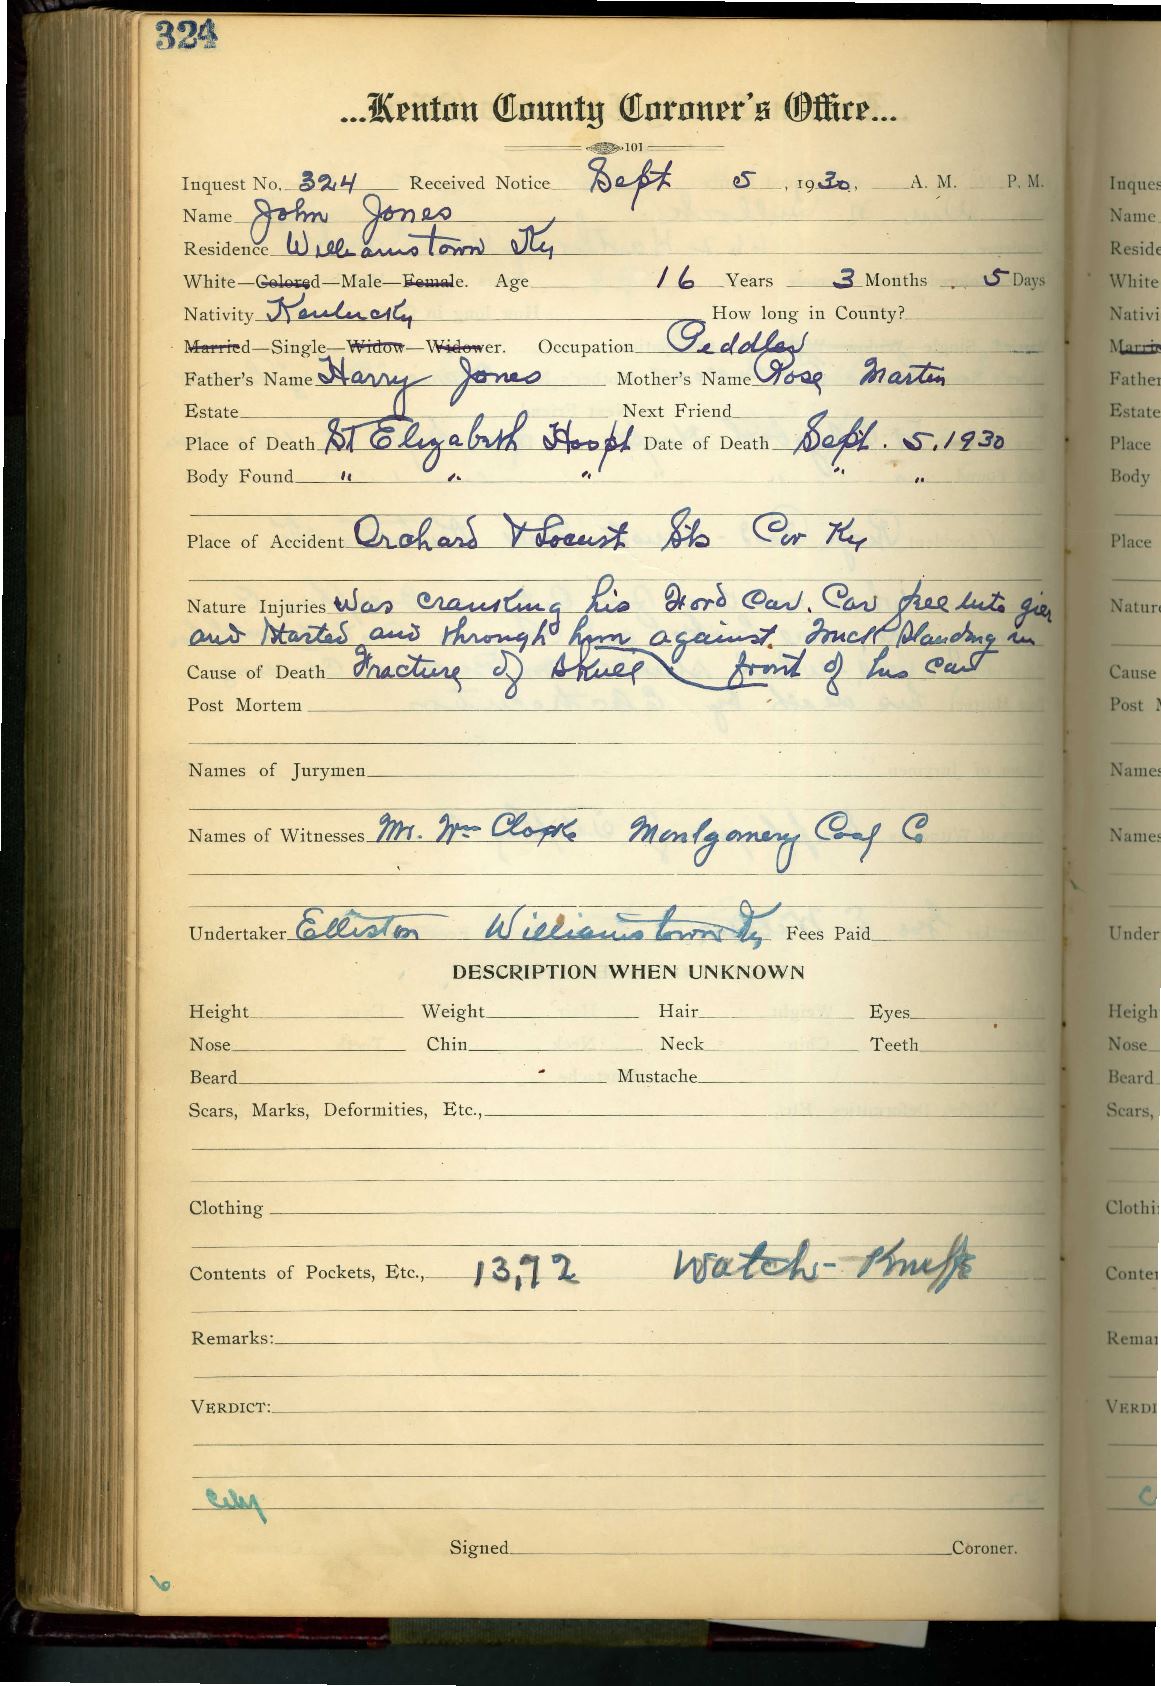 324
...Kenton County Coroner's Office...
101
Inquest No. 324 Received Notice Sept 5, 1930, A. M. P. M.
Name John Jones
Residence Williamstown Ky
White—Colored—Male—Female. Age 16 Years 3 Months 5 Days
Nativity Kentucky How long in County?
Married—Single—Widow—Widower. Occupation Peddler
Father's Name Harry Jones Mother's Name Rose Martin
Estate Next Friend
Place of Death St Elizabeth Hospt Date of Death Sept. 5. 1930
Body Found " " " " "
Place of Accident Orchard & Locust Sts Cov Ky
Nature Injuries Was cranking his Ford Car. Car fell into gier
and started and through him against truck standing in
front of his car
Cause of Death Fracture of Skull
Post Mortem
Names of Jurymen
Names of Witnesses Mr. Wm Montgomery Coal Co
Undertaker Elliston Williamstown Ky Fees Paid
DESCRIPTION WHEN UNKNOWN
Height Weight Hair Eyes
Nose Chin Neck Teeth
Beard Mustache
Scars, Marks, Deformities, Etc.,
Clothing
Contents of Pockets, Etc., 13,72 Watch - Kniffe
Remarks:
VERDICT:
City
Signed Coroner.
6
Inques
Name
Reside
White
Nativi
Marrie
Father
Estate
Place
Body
Place
Nature
Cause
Post M
Names
Names
Under
Heigh
Nose
Beard
Scars,
Clothi
Conte
Remar
VERDI
C